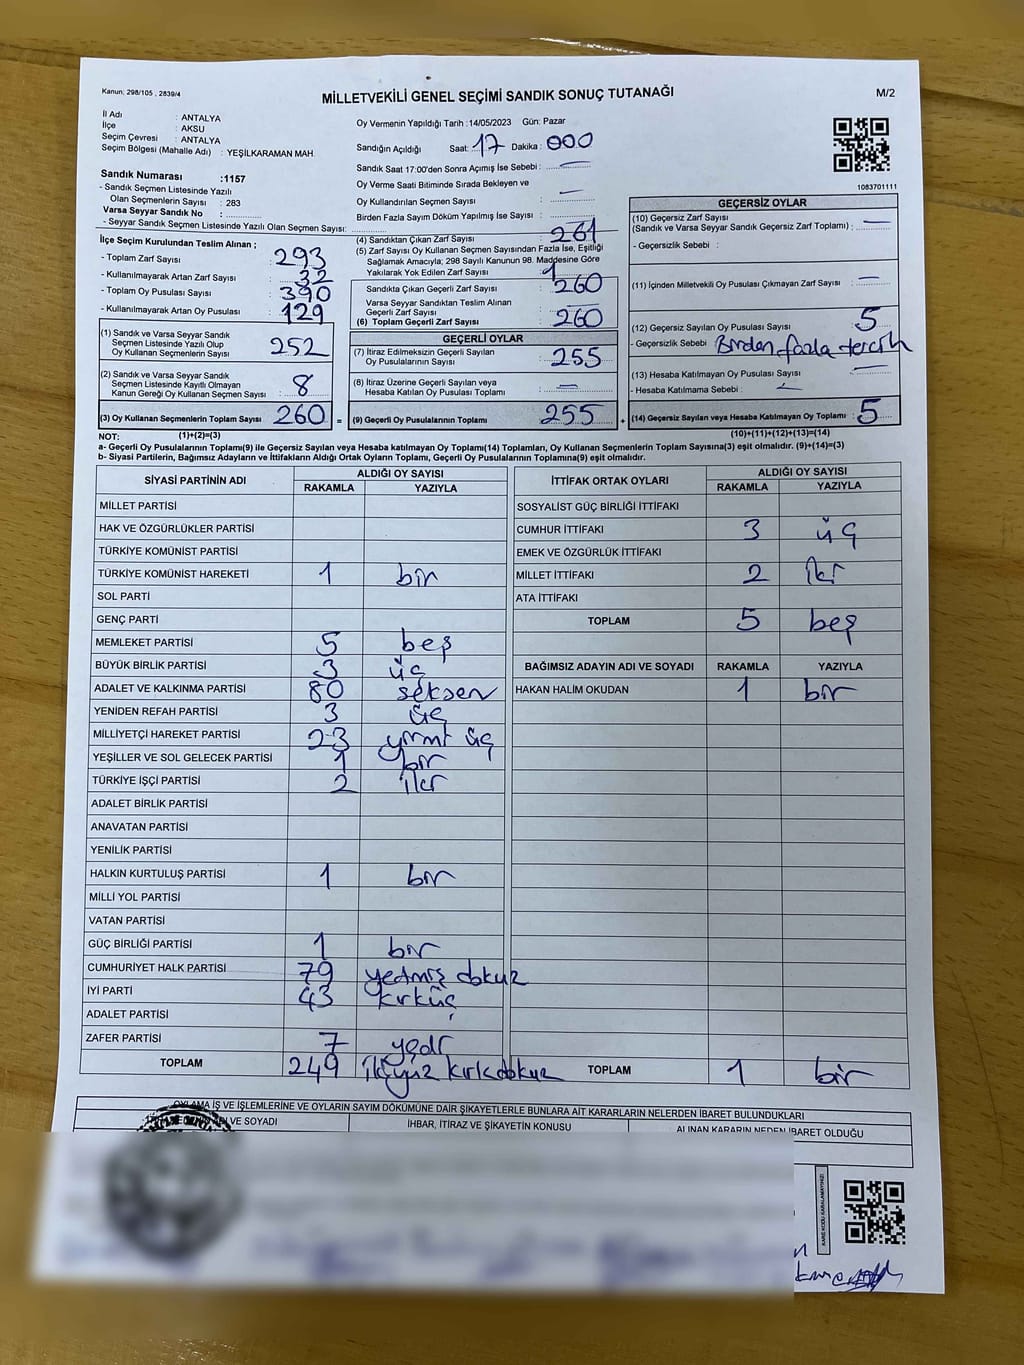 Kanun: 298/105 , 2839/4
MİLLETVEKİLİ GENEL SEÇİMİ SANDIK SONUÇ TUTANAĞI
M/2
İl Adı : ANTALYA
İlçe : AKSU
Seçim Çevresi : ANTALYA
Seçim Bölgesi (Mahalle Adı) : YEŞİLKARAMAN MAH.
Oy Vermenin Yapıldığı Tarih :14/05/2023 Gün: Pazar
Sandığın Açıldığı Saat: 17 Dakika: 000
Sandık Saat 17:00'den Sonra Açımış İse Sebebi : —
Oy Verme Saati Bitiminde Sırada Bekleyen ve
Oy Kullandırılan Seçmen Sayısı : —
Birden Fazla Sayım Döküm Yapılmış İse Sayısı :
1083701111
Sandık Numarası :1157
- Sandık Seçmen Listesinde Yazılı
Olan Seçmenlerin Sayısı : 283
Varsa Seyyar Sandık No :
- Seyyar Sandık Seçmen Listesinde Yazılı Olan Seçmen Sayısı:
İlçe Seçim Kurulundan Teslim Alınan ;
- Toplam Zarf Sayısı : 293
- Kullanılmayarak Artan Zarf Sayısı : 32
- Toplam Oy Pusulası Sayısı : 390
- Kullanılmayarak Artan Oy Pusulası : 129
(1) Sandık ve Varsa Seyyar Sandık
Seçmen Listesinde Yazılı Olup
Oy Kullanan Seçmenlerin Sayısı : 252
(2) Sandık ve Varsa Seyyar Sandık
Seçmen Listesinde Kayıtlı Olmayan
Kanun Gereği Oy Kullanan Seçmen Sayısı : 8
(3) Oy Kullanan Seçmenlerin Toplam Sayısı : 260 =
(4) Sandıktan Çıkan Zarf Sayısı : 261
(5) Zarf Sayısı Oy Kullanan Seçmen Sayısından Fazla İse, Eşitliği
Sağlamak Amacıyla; 298 Sayılı Kanunun 98. Maddesine Göre
Yakılarak Yok Edilen Zarf Sayısı : 1
Sandıkta Çıkan Geçerli Zarf Sayısı : 260
Varsa Seyyar Sandıktan Teslim Alınan
Geçerli Zarf Sayısı : —
(6) Toplam Geçerli Zarf Sayısı : 260
GEÇERLİ OYLAR
(7) İtiraz Edilmeksizin Geçerli Sayılan
Oy Pusulalarının Sayısı : 255
(8) İtiraz Üzerine Geçerli Sayılan veya
Hesaba Katılan Oy Pusulası Toplamı : —
(9) Geçerli Oy Pusulalarının Toplamı : 255 +
GEÇERSİZ OYLAR
(10) Geçersiz Zarf Sayısı
(Sandık ve Varsa Seyyar Sandık Geçersiz Zarf Toplamı) : —
- Geçersizlik Sebebi :
(11) İçinden Milletvekili Oy Pusulası Çıkmayan Zarf Sayısı : —
(12) Geçersiz Sayılan Oy Pusulası Sayısı : 5
- Geçersizlik Sebebi : Birden fazla tercih
(13) Hesaba Katılmayan Oy Pusulası Sayısı : —
- Hesaba Katılmama Sebebi : —
(14) Geçersiz Sayılan veya Hesaba Katılmayan Oy Toplamı : 5
NOT: (1)+(2)=(3)
(10)+(11)+(12)+(13)=(14)
a- Geçerli Oy Pusulalarının Toplamı(9) ile Geçersiz Sayılan veya Hesaba katılmayan Oy Toplamı(14) Toplamları, Oy Kullanan Seçmenlerin Toplam Sayısına(3) eşit olmalıdır. (9)+(14)=(3)
b- Siyasi Partilerin, Bağımsız Adayların ve İttifakların Aldığı Ortak Oyların Toplamı, Geçerli Oy Pusulalarının Toplamına(9) eşit olmalıdır.
SİYASİ PARTİNİN ADI ALDIĞI OY SAYISI
RAKAMLA YAZIYLA
MİLLET PARTİSİ
HAK VE ÖZGÜRLÜKLER PARTİSİ
TÜRKİYE KOMÜNİST PARTİSİ
TÜRKİYE KOMÜNİST HAREKETİ 1 bir
SOL PARTİ
GENÇ PARTİ
MEMLEKET PARTİSİ 5 beş
BÜYÜK BİRLİK PARTİSİ 3 üç
ADALET VE KALKINMA PARTİSİ 80 seksen
YENİDEN REFAH PARTİSİ 3 üç
MİLLİYETÇİ HAREKET PARTİSİ 23 yirmi üç
YEŞİLLER VE SOL GELECEK PARTİSİ 1 bir
TÜRKİYE İŞÇİ PARTİSİ 2 iki
ADALET BİRLİK PARTİSİ
ANAVATAN PARTİSİ
YENİLİK PARTİSİ
HALKIN KURTULUŞ PARTİSİ 1 bir
MİLLİ YOL PARTİSİ
VATAN PARTİSİ
GÜÇ BİRLİĞİ PARTİSİ 1 bir
CUMHURİYET HALK PARTİSİ 79 yetmiş dokuz
İYİ PARTİ 43 kırküç
ADALET PARTİSİ
ZAFER PARTİSİ 7 yedi
TOPLAM 249 ikiyüz kırkdokuz
İTTİFAK ORTAK OYLARI ALDIĞI OY SAYISI
RAKAMLA YAZIYLA
SOSYALİST GÜÇ BİRLİĞİ İTTİFAKI
CUMHUR İTTİFAKI 3 üç
EMEK VE ÖZGÜRLÜK İTTİFAKI
MİLLET İTTİFAKI 2 iki
ATA İTTİFAKI
TOPLAM 5 beş
BAĞIMSIZ ADAYIN ADI VE SOYADI RAKAMLA YAZIYLA
HAKAN HALİM OKUDAN 1 bir
TOPLAM 1 bir
OYLAMA İŞ VE İŞLEMLERİNE VE OYLARIN SAYIM DÖKÜMÜNE DAİR ŞİKAYETLERLE BUNLARA AİT KARARLARIN NELERDEN İBARET BULUNDUKLARI
ADI VE SOYADI
İHBAR, İTİRAZ VE ŞİKAYETİN KONUSU
ALINAN KARARIN NEDEN İBARET OLDUĞU
KARE KODU KARALAMAYINIZ!